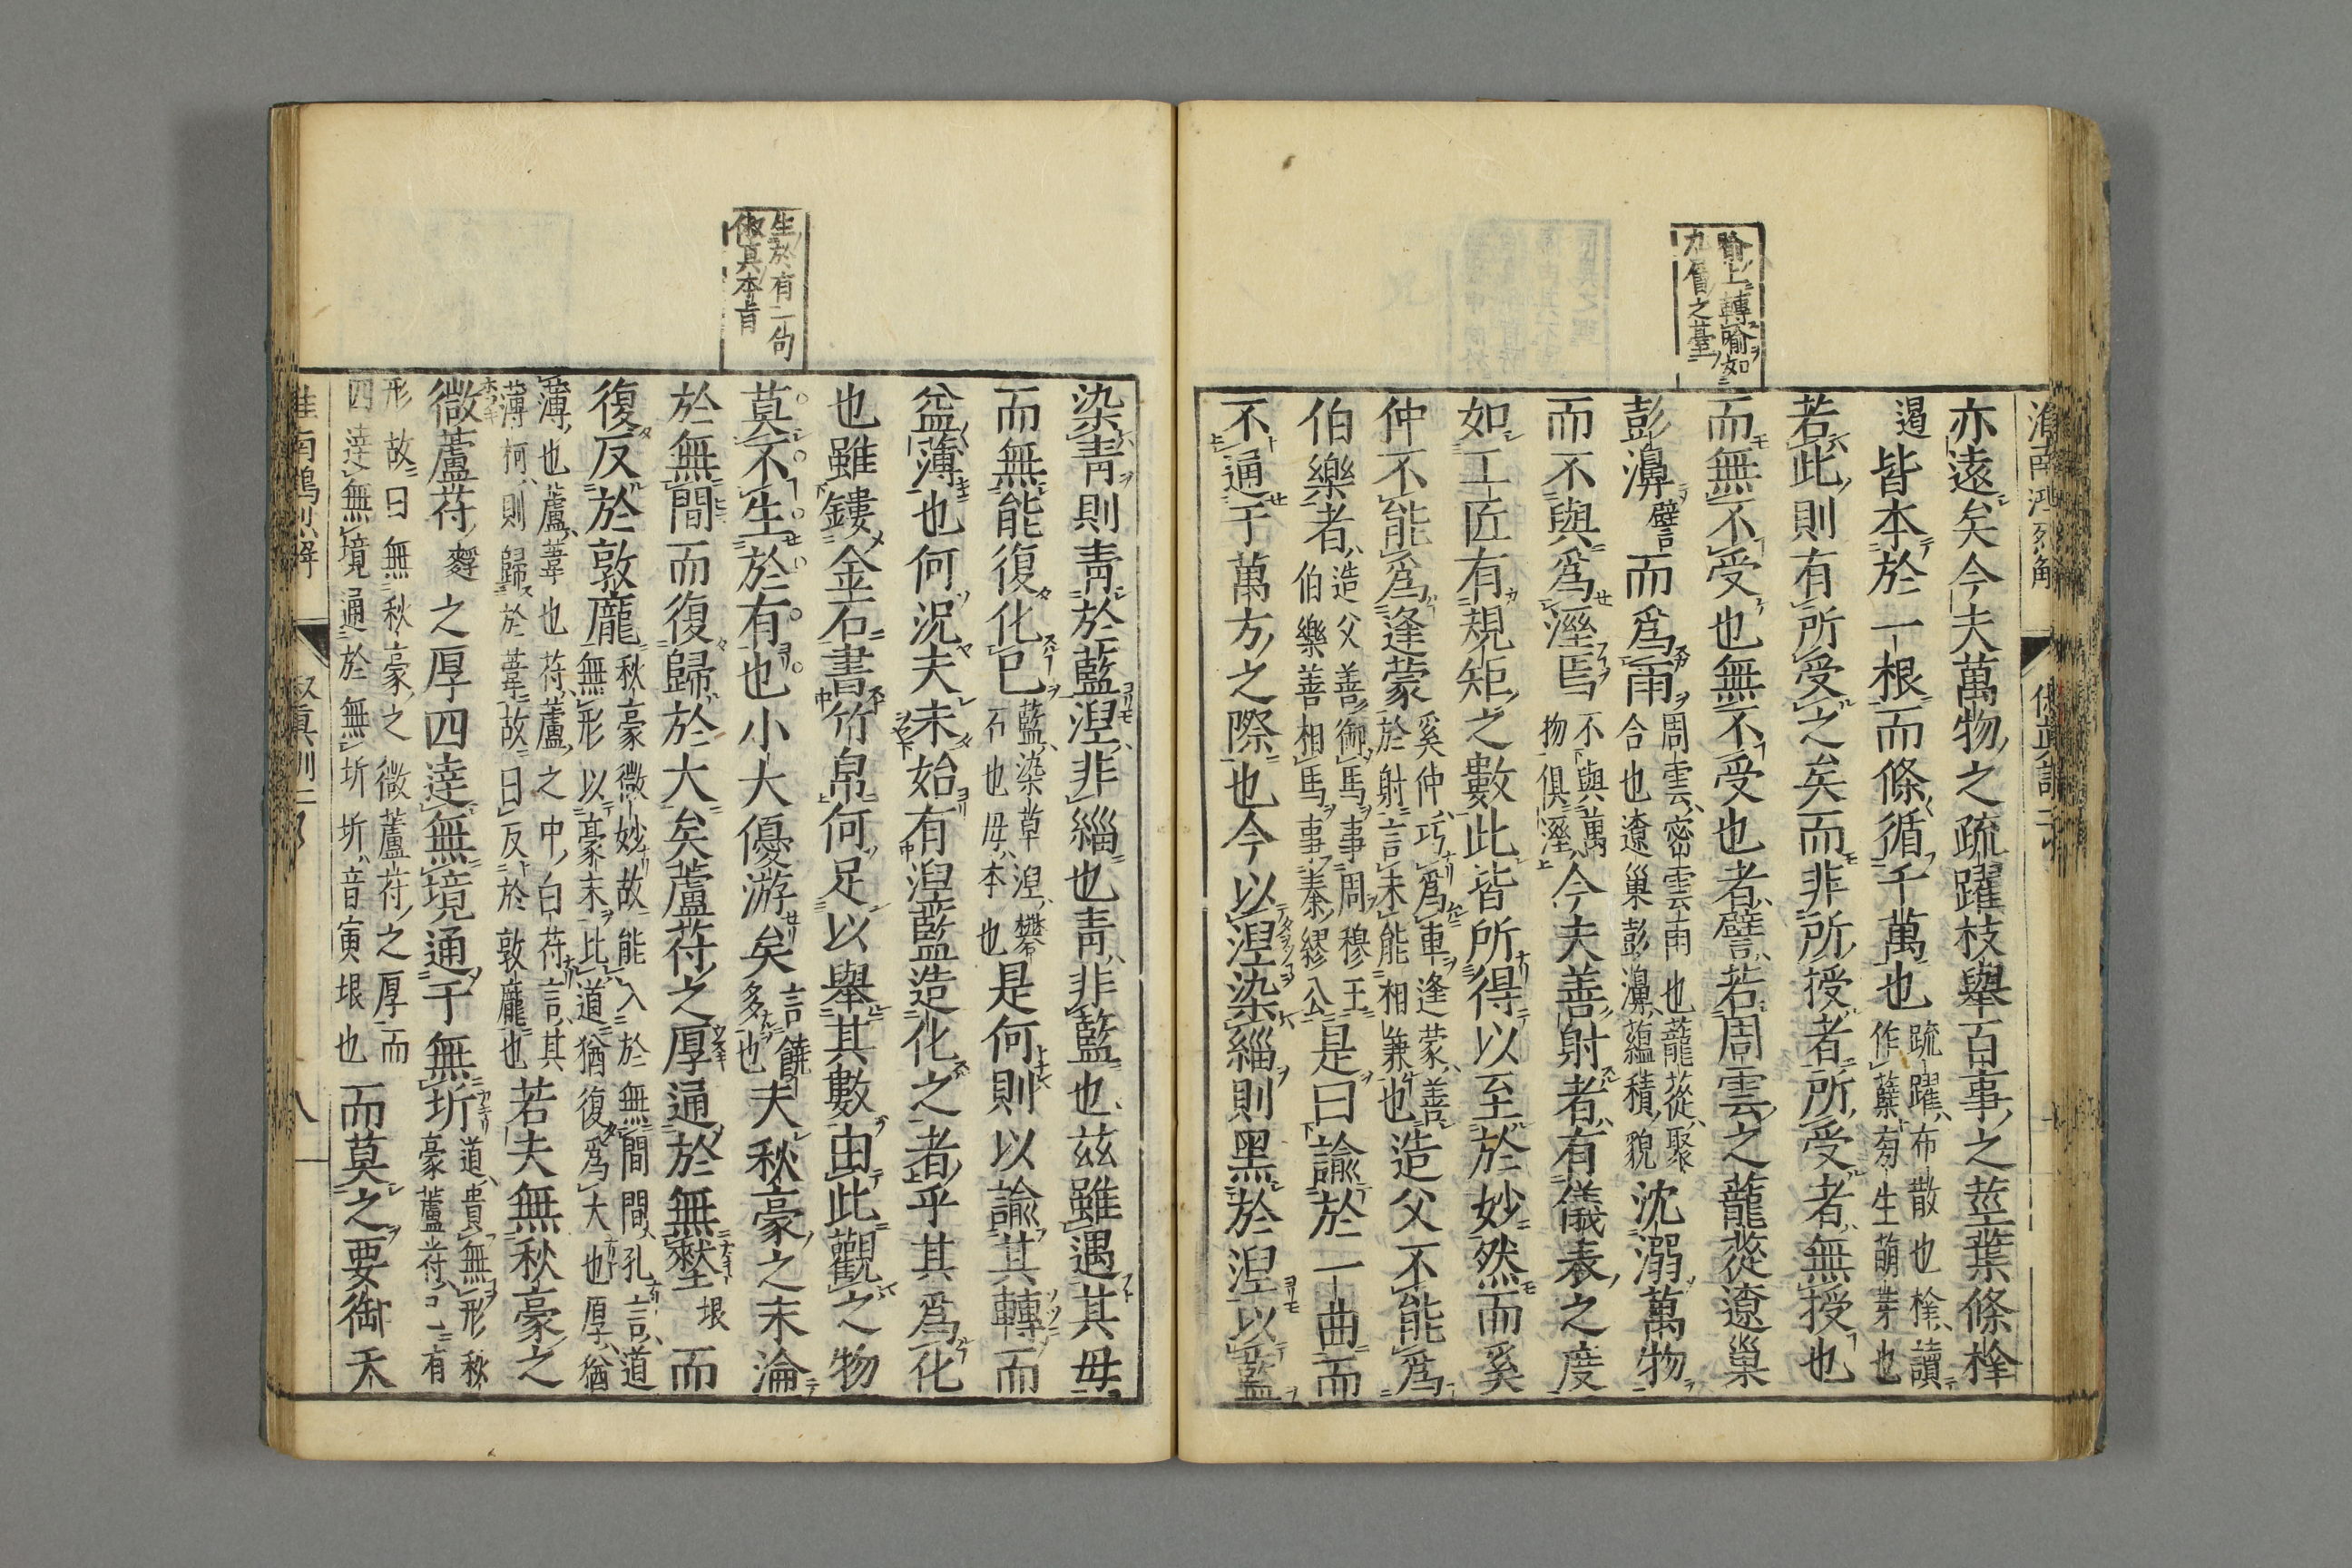 喻上轉喻如
九層之臺
亦遠矣今夫萬物之疏躍枝舉百事之莖葉條栓
遏皆本於一根而條循千萬也疏躍布散也栓讀作蘖芴生萌芽也
若此則有所受之矣而非所授者所受者無授也
而無不受也無不受也者譬若周雲之蘢蓯遼巢
彭濞譬而爲雨周雲密雲雨也蘢蓯聚合也遼巢彭濞蘊積貌沈溺萬物
而不與爲溼焉不與萬物俱溼今夫善射者有儀表之度
如工匠有規矩之數此皆所得以至於妙然而奚
仲不能爲逢蒙奚仲巧爲車逢蒙善於射言未能相兼也造父不能爲
伯樂者造父善御馬事周穆王伯樂善相馬事秦繆公是曰諭於一曲而
不通于萬方之際也今以涅染緇則黑於涅以藍
生於有二句
俶真本旨
染青則青於藍涅非緇也青非藍也茲雖遇其母
而無能復化已藍染草涅礬石也母本也是何則以諭其轉而
益薄也何況夫未始有涅藍造化之者乎其爲化
也雖鏤金石書竹帛何足以舉其數由此觀之物
莫不生於有也小大優游矣言饒多也夫秋豪之末淪
於無間而復歸於大矣蘆苻之厚通於無㙬垠而
復反於敦龐秋豪微妙故能入於無間間孔言道無形以豪末比道猶復爲大也厚猶
薄也蘆葦也苻蘆之中白苻言其薄柯則歸於葦故曰反於敦龐也若夫無秋豪之
微蘆苻之厚四達無境通于無圻道貴無形秋豪蘆苻已有
形故曰無秋豪之微蘆苻之厚而四達無境通於無圻圻音寅垠也而莫之要御夭
俶真訓二 八